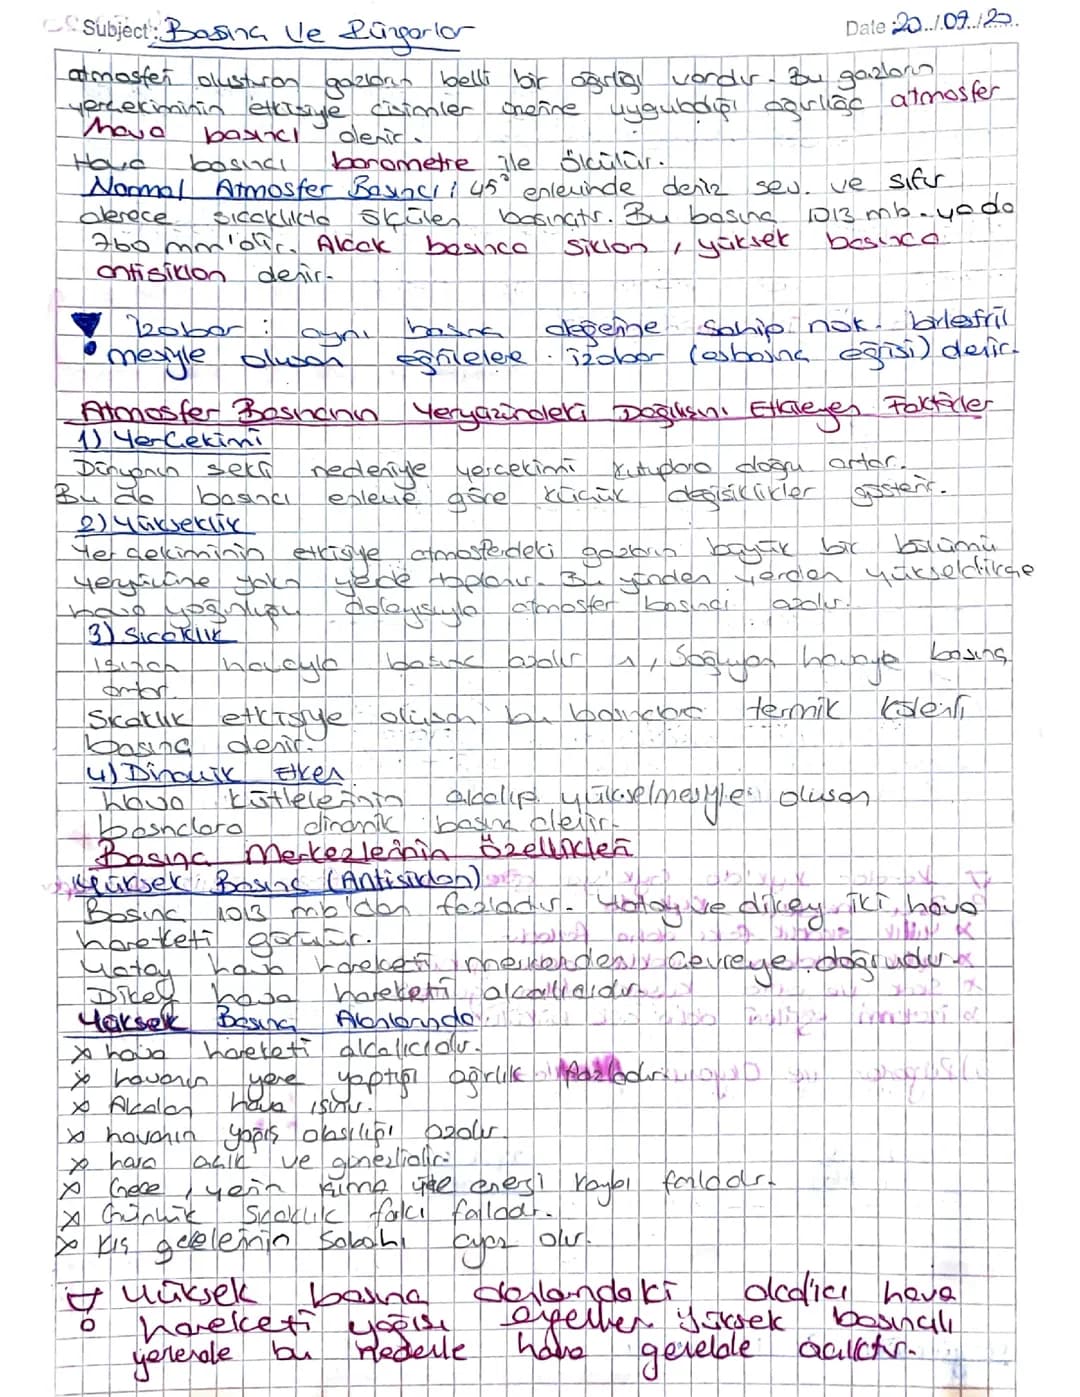 Subject: Basınç Ve Rüzgarlar Date: 20../.09./20..
atmosferi oluşturan gazların belli bir ağırlığı vardır. Bu gazların
yerçekiminin etkisiyle cisimler üzerine uyguladığı ağırlığa atmosfer
Hava basıncı denir.
Hava basıncı barometre ile ölçülür.
Normal Atmosfer Basıncı: 45° enleminde deniz sev. ve sıfır
derece sıcaklıkta ölçülen basınçtır. Bu basınç 1013 mb. ya da
760 mm'dir. Alçak basınca siklon, yüksek basınca
antisiklon denir.
İzobar: aynı basınç değerine sahip nok. birleştiril
mesiyle oluşan eğrilere izobar (eşbasınç eğrisi) denir.
Atmosfer Basıncının Yeryüzündeki Dağılışını Etkileyen Faktörler
1) YerÇekimi
Dünyanın şekli nedeniyle yerçekimi kutuplara doğru artar.
Bu da basıncı enleme göre küçük değişiklikler gösterir.
2) Yükseklik
Yer çekiminin etkisiyle atmosferdeki gazların büyük bir bölümü
yeryüzüne yakın yerde toplanır. Bu yünden yerden yükseldikçe
hava yoğunluğu dolayısıyla atmosfer basıncı azalır.
3) Sıcaklık
Isınan havayla basınç azalır, Soğuyan havaya basınç
artar.
Sıcaklık etkisiyle oluşan bu basınçlara termik kökenli
basınç denir.
4) Dinamik Etken
hava kütlelerinin alçalıp yükselmesiyle oluşan
basınçlara dinamik basınç denir.
Basınç Merkezlerinin Özellikleri
Yüksek Basınç (Antisiklon)
Basınç 1013 mb'dan fazladır. Yatay ve dikey iki hava
hareketi görülür.
Yatay hava hareketi merkezden çevreye doğrudur.
Dikey hava hareketi alçalıcıdır.
Yüksek Basınç Alanlarında
x hava hareketi alçalıcıdır.
x havanın yere yaptığı ağırlık fazladır.
x Alçalan hava ısınır.
x havanın yağış olasılığı azalır.
x hava açık ve güneşlidir.
x Gece, yerin ışıma ile enerji kaybı fazladır.
x Günlük Sıcaklık farkı fazladır.
x Kış gecelerinin Sabahı ayaz olur.
Yüksek basınç alanlarındaki alçalıcı hava
hareketi yağışı engeller Yüksek basınçlı
yerlerde bu nedenle hava genelde açıktır.